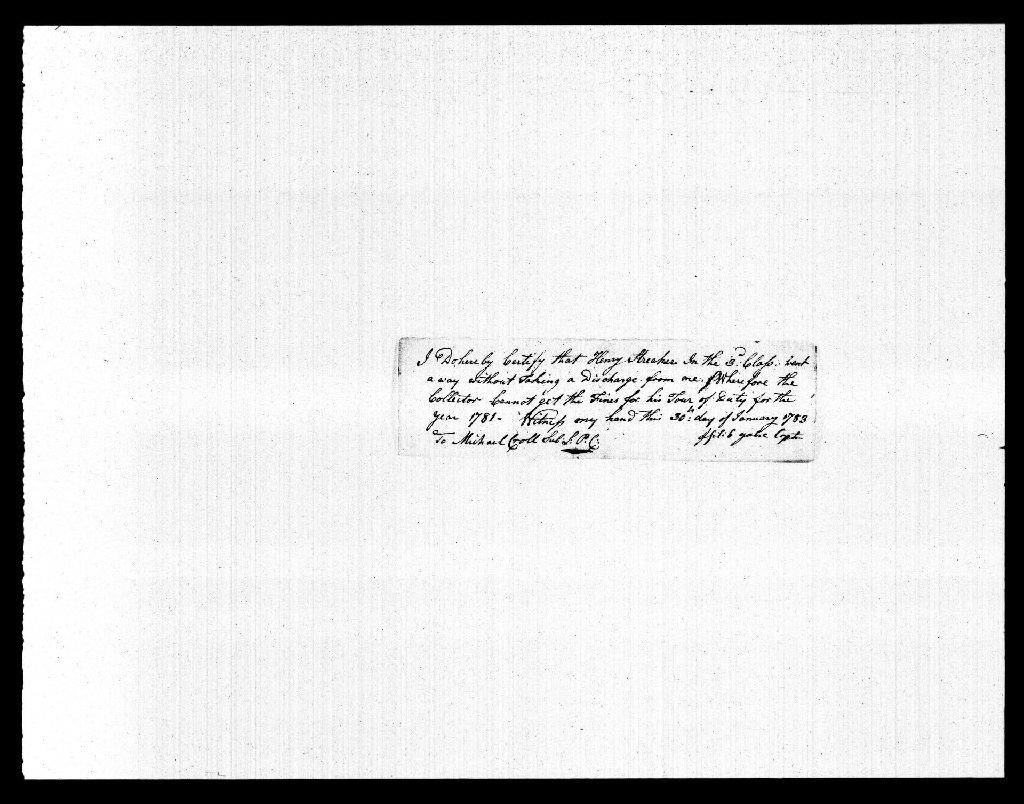 I Do hereby Certify that Henry Streaker In the 3d Class. went
a way without Taking a Discharge from me. Wherefore the
Collector Cannot get the Fines for his Tour of Duty for the
year 1781 - Witness my hand this 30th day of January 1783
To Michael Croll Sub. L. P. C. Capt.